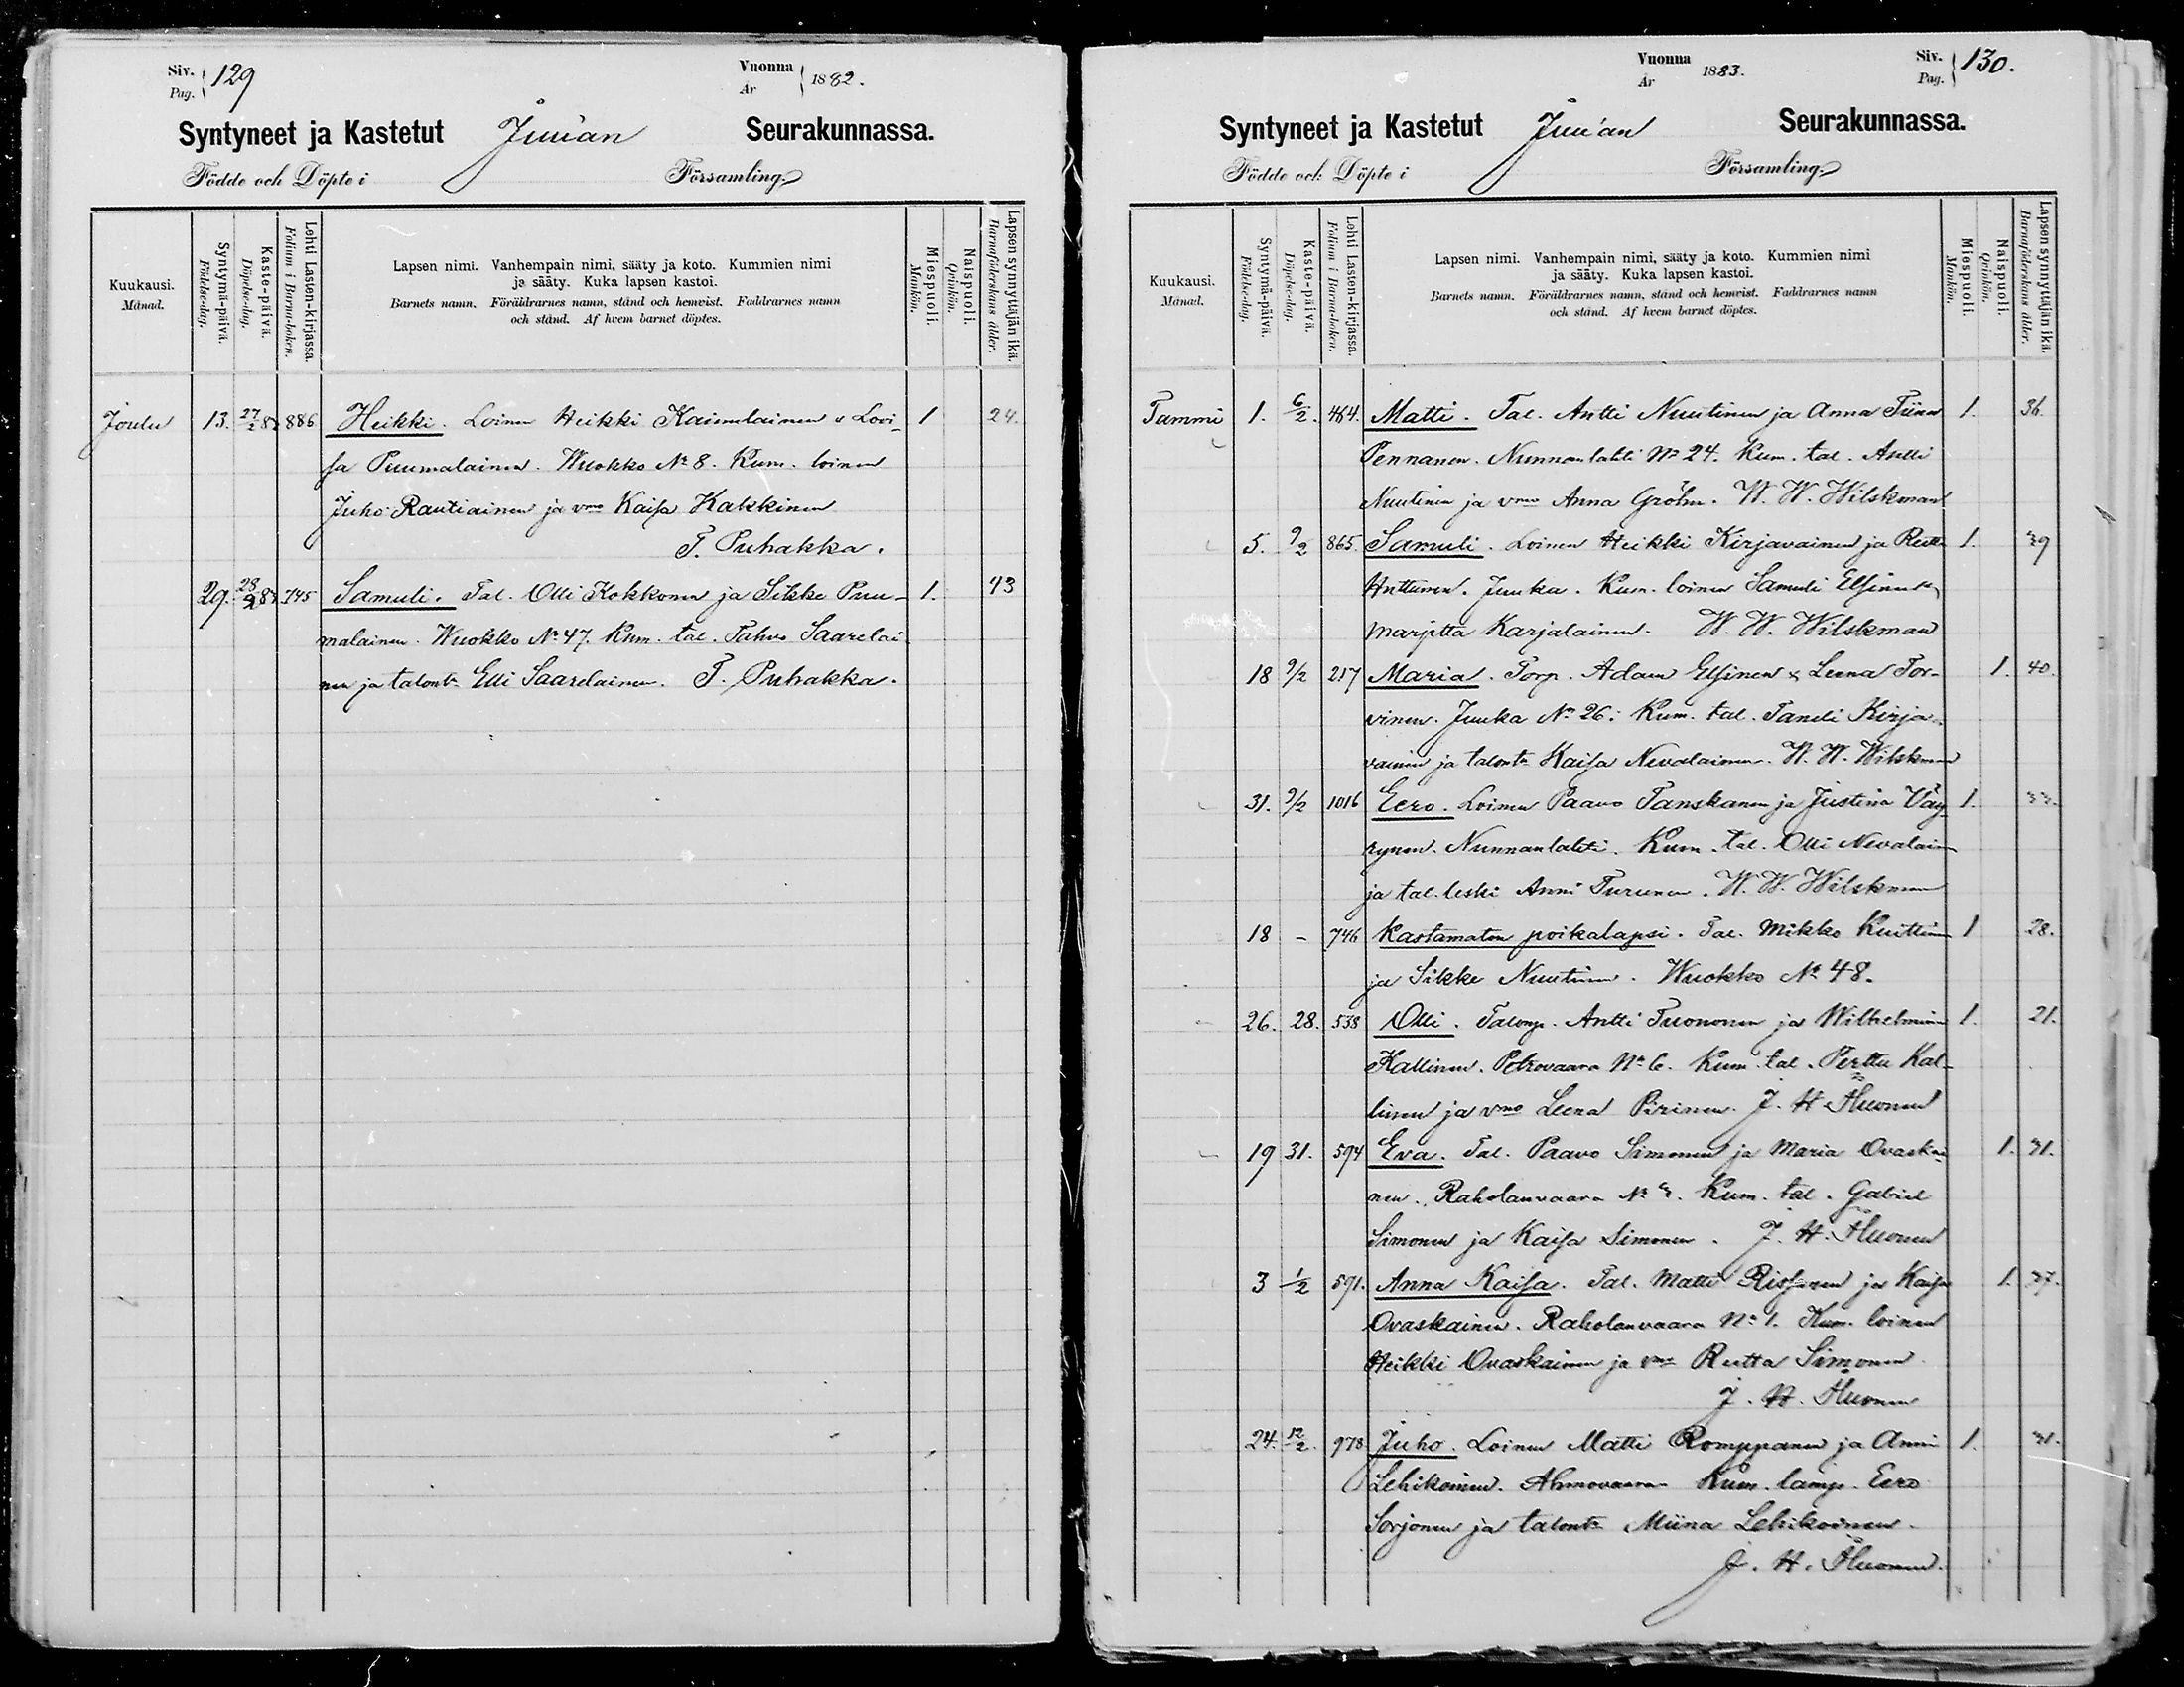 Siv. Pag. 129
Vuonna År 1882.
Syntyneet ja Kastetut Juuan Seurakunnassa.
Födde och Döpte i Församling.
Kuukausi. Månad.
Syntymä-päivä. Födelse-dag.
Kaste-päivä. Döpelse-dag.
Lehti Lasten-kirjassa. Folium i Barna-boken.
Lapsen nimi. Vanhempain nimi, sääty ja koto. Kummien nimi
ja sääty. Kuka lapsen kastoi.
Barnets namn. Föräldrarnes namn, stånd och hemvist. Faddrarnes namn
och stånd. Af hvem barnet döptes.
Miespuoli. Mankön.
Naispuoli. Qvinkön.
Lapsen synnyttäjän ikä. Barnaföderskans ålder.
Joulu 13. 27/2 83 886 Heikki. Loinen Heikki Kaimulainen & Lovi- 1 24.
sa Puumalainen. Wuokko No 8. Kum. loinen
Juho Rautiainen ja vmo Kaisa Kakkinen
T. Puhakka.
29. 28/2 83. 745 Samuli. Tal. Olli Kokkonen ja Sikke Puu- 1. 43
malainen. Wuokko No 47. Kum. tal. Pahvo Saarelai
nen ja talont. Elli Saarelainen. T. Puhakka.
Vuonna År 1883.
Siv. Pag. 130.
Syntyneet ja Kastetut Juu'an Seurakunnassa.
Födde och Döpte i Församling.
Kuukausi. Månad.
Syntymä-päivä. Födelse-dag.
Kaste-päivä. Döpelse-dag.
Lehti Lasten-kirjassa. Folium i Barna-boken.
Lapsen nimi. Vanhempain nimi, sääty ja koto. Kummien nimi
ja sääty. Kuka lapsen kastoi.
Barnets namn. Föräldrarnes namn, stånd och hemvist. Faddrarnes namn
och stånd. Af hvem barnet döptes.
Miespuoli. Mankön.
Naispuoli. Qvinkön.
Lapsen synnyttäjän ikä. Barnaföderskans ålder.
Tammi 1. 6/2. 464. Matti. Tal. Antti Nuutinen ja Anna Tiina 1. 36.
Pennanen. Nunnanlahti No 24. Kum. tal. Antti
Nuutinen ja vmo Anna Gröhn. W. W. Wilskman
5. 9/2 865. Samuli. Loinen Heikki Kirjavainen ja Reetta 1. 39
Huttunen. Juuka. Kum. loinen Samuli Elsinen &
Marjetta Karjalainen. W. W. Wilskman
18 9/2 217 Maria. Torp. Adam Elsinen & Leena Tor- 1. 40.
vinen. Juuka No 26. Kum. tal. Taneli Kirja-
vainen ja talont. Kaisa Nevalainen. W. W. Wilskman
31. 9/2 1016 Eero. Loinen Paavo Tanskanen ja Justina Väy 1. 33.
rynen. Nunnanlahti. Kum. tal. Olli Nevalainen
ja tal. leski Anni Turunen. W. W. Wilskman
18 - 746 Kastamaton poikalapsi. Tal. Mikko Kuittinen 1 28.
ja Sikke Nuutinen. Wuokko No 48.
26. 28. 538 Olli. Talonp. Antti Tuononen ja Wilhelmiina 1. 21.
Kallinen. Petrovaara No 6. Kum. tal. Perttu Kal-
linen ja vmo Leena Pirinen. J. H. Huonen
19 31. 594 Eva. Tal. Paavo Simonen ja Maria Ovaskai 1. 31.
nen. Raholanvaara No 3. Kum. tal. Gabriel
Simonen ja Kaisa Simonen. J. H. Huonen
3 1/2 591. Anna Kaisa. Tal. Matti Rissanen ja Kaisa 1. 37.
Ovaskainen. Raholanvaara No 1. Kum. loinen
Heikki Ovaskainen ja vmo Reetta Simonen
J. H. Huonen
24. 12/2. 978 Juho. Loinen Matti Romppanen ja Anni 1. 31.
Lehikoinen. Ahmovaara Kum. lamp. Eero
Sorjonen ja talont. Miina Lehikoinen.
J. H. Huonen.